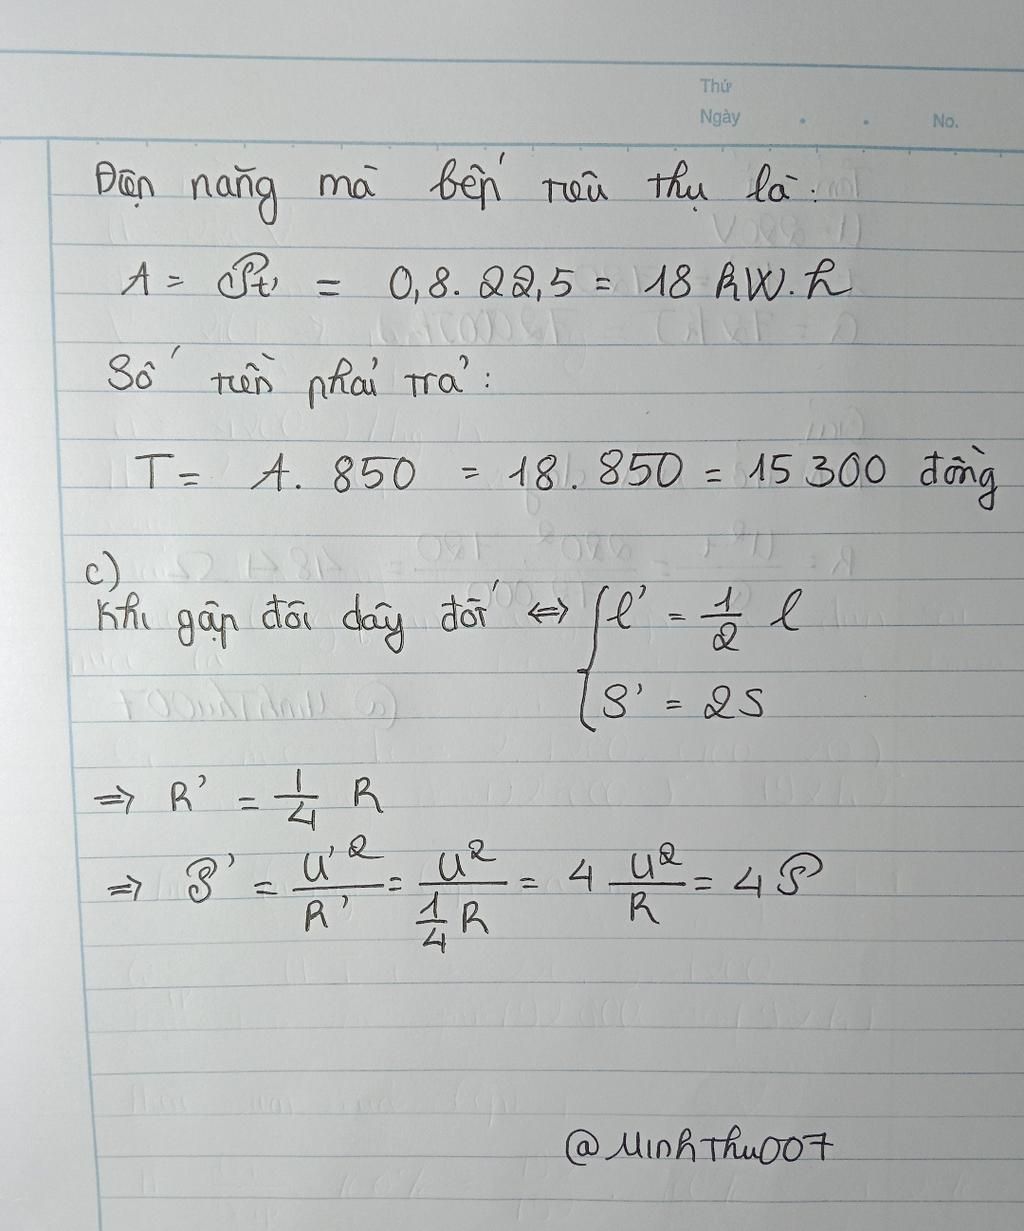 Thứ
Ngày . . No.
Điện năng mà bếp tiêu thụ là:
A = Pt = 0,8. 22,5 = 18 kW.h
Số tiền phải trả:
T = A. 850 = 18. 850 = 15 300 đồng
c)
Khi gập đôi dây đôi ⇔ { l' = 1/2 l
S' = 2S
⇒ R' = 1/4 R
⇒ P' = U'²/R' = U²/(1/4 R) = 4 U²/R = 4P
@MinhThu007